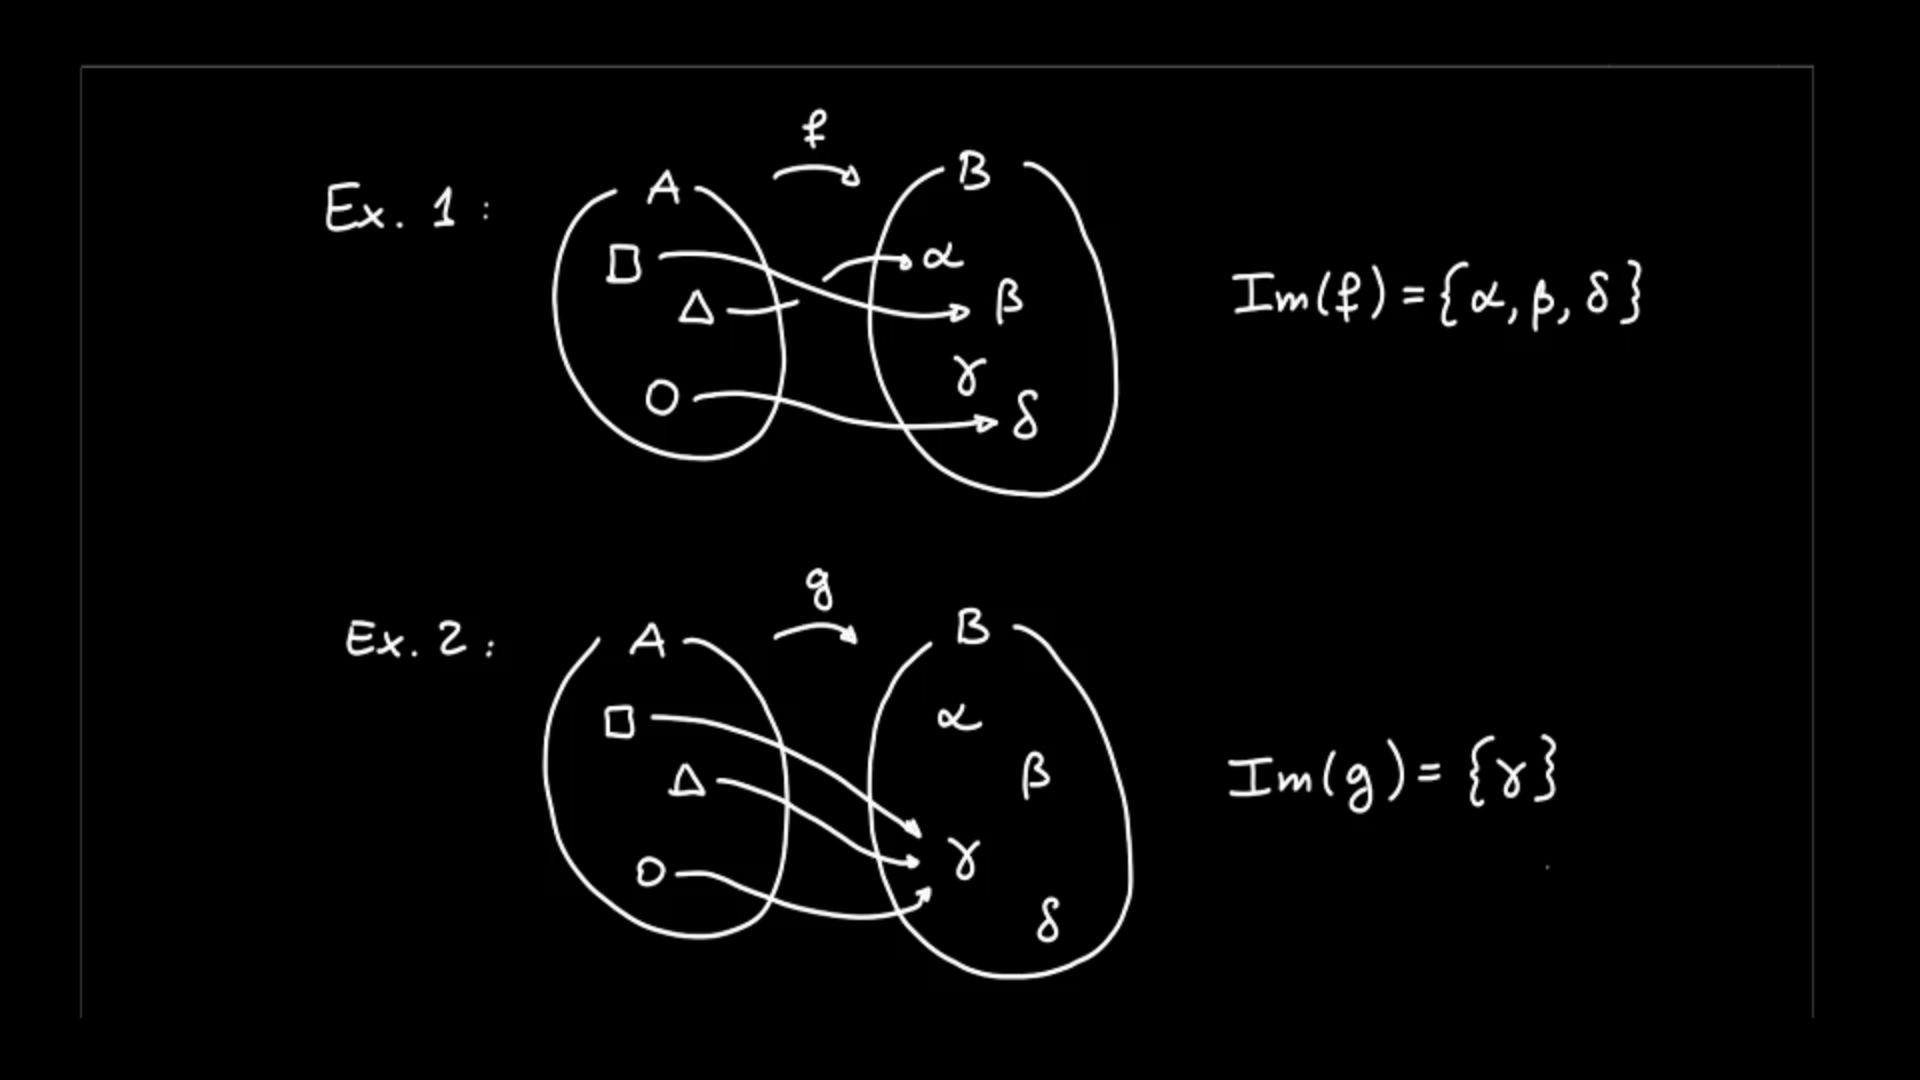 f
Ex. 1 :
A
B
□
α
△
β
γ
○
δ
Im(f) = {α, β, δ}
g
Ex. 2 :
A
B
□
α
△
β
γ
○
δ
Im(g) = {γ}